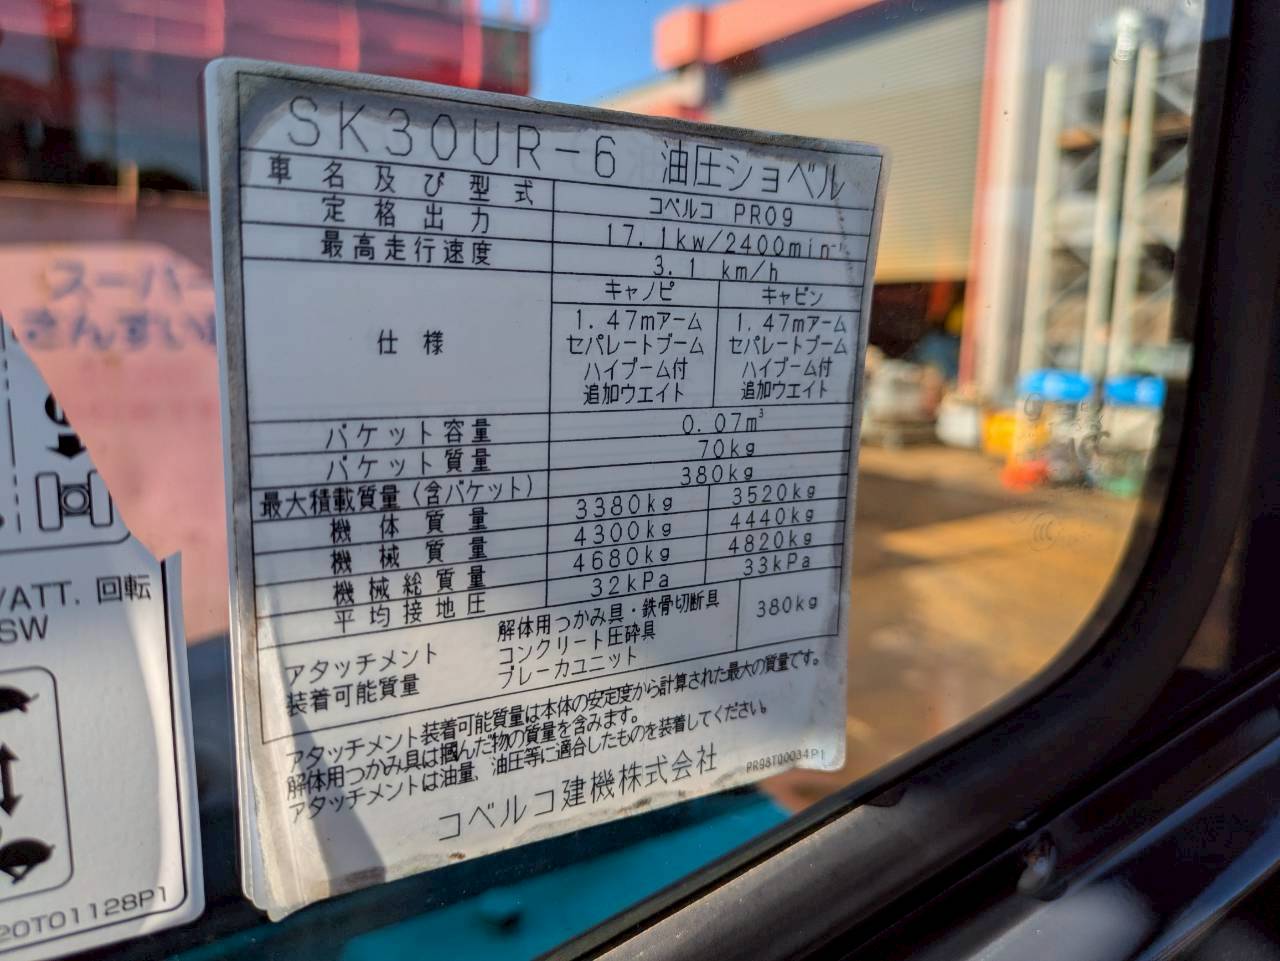 SK30UR-6 油圧ショベル
車名及び型式 コベルコ PR09
定格出力 17.1kw/2400min⁻¹
最高走行速度 3.1 km/h
仕様 キャノピ キャビン
1.47mアーム 1.47mアーム
セパレートブーム セパレートブーム
ハイブーム付 ハイブーム付
追加ウエイト 追加ウエイト
バケット容量 0.07m³
バケット質量 70kg
最大積載質量(含バケット) 380kg
機体質量 3380kg 3520kg
機械質量 4300kg 4440kg
機械総質量 4680kg 4820kg
平均接地圧 32kPa 33kPa
アタッチメント
装着可能質量
解体用つかみ具・鉄骨切断具
コンクリート圧砕具
ブレーカユニット
380kg
アタッチメント装着可能質量は本体の安定度から計算された最大の質量です。
解体用つかみ具は掴んだ物の質量を含みます。
アタッチメントは油量、油圧等に適合したものを装着してください。
コベルコ建機株式会社 PR98T00034P1
/ATT. 回転
SW
20T01128P1
スーパー
さんすい